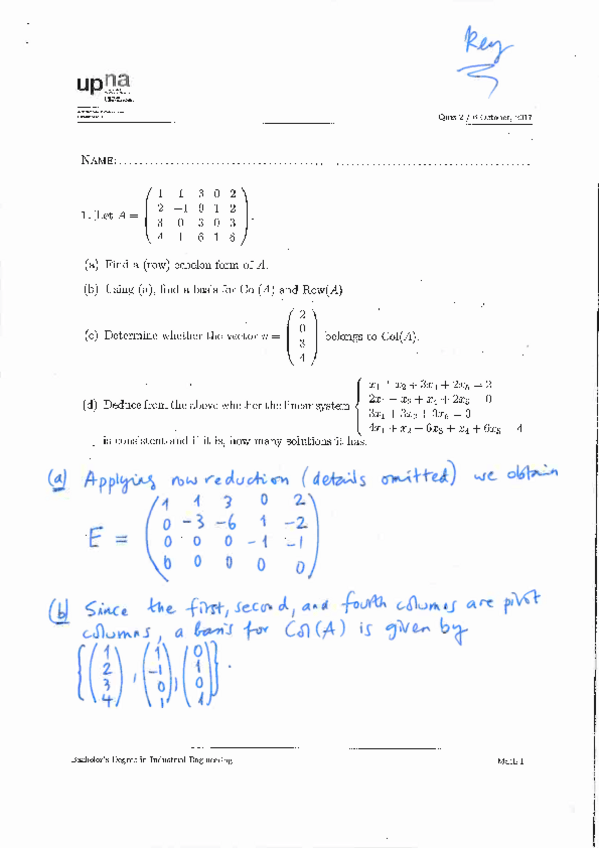 Key
upna
Quiz 2 / 6 October, 2017
NAME:
1. Let A = ( 1 1 3 0 2
2 −1 0 1 2
3 0 3 0 3
4 1 6 1 6 ).
(a) Find a (row) echelon form of A.
(b) Using (a), find a basis for Col(A) and Row(A)
(c) Determine whether the vector u = ( 2
0
3
4 ) belongs to Col(A).
(d) Deduce from the above whether the linear system
is consistent and if it is, how many solutions it has.
(a) Applying row reduction (details omitted) we obtain
E = ( 1 1 3 0 2
0 -3 -6 1 -2
0 0 0 -1 -1
0 0 0 0 0 )
(b) Since the first, second, and fourth columns are pivot
columns, a basis for Col(A) is given by
{ ( 1
2
3
4 ) , ( 1
-1
0
1 ) , ( 0
1
0
1 ) } .
Bachelor's Degree in Industrial Engineering
Math I